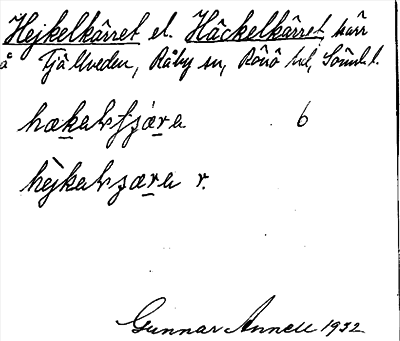 Hejkelkärret el. Häckelkärret, kärr
å Tjälleveden, Råby sn, Rönö hd, Södml.
hækalstjæra 6
hejkalsjæra r.
Gunnar Annell 1932